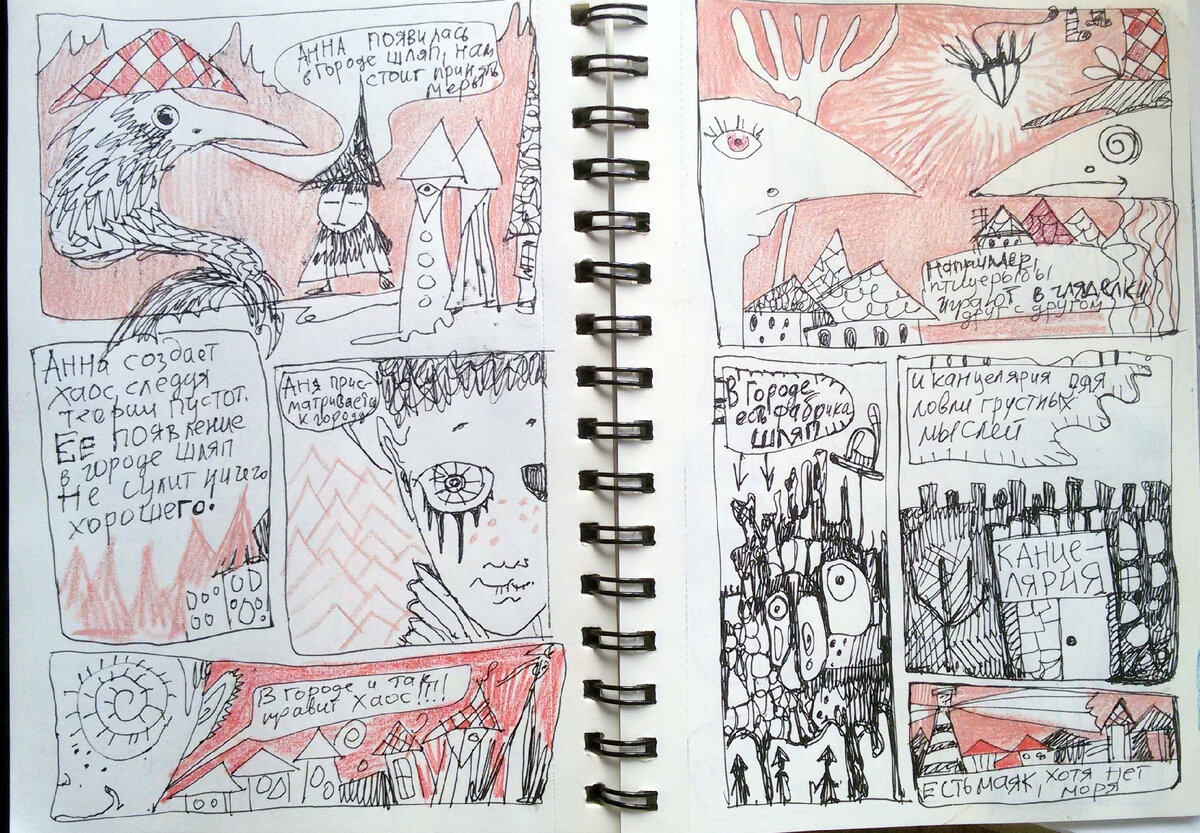 АННА ПОЯВИЛАСЬ
В ГОРОДЕ ШЛЯП, НАМ
СТОИТ ПРИНЯТЬ
МЕРЫ
АННА СОЗДАЕТ
ХАОС, СЛЕДУЯ
ТЕОРИИ ПУСТОТ.
ЕЕ ПОЯВЛЕНИЕ
В ГОРОДЕ ШЛЯП
НЕ СУЛИТ НИЧЕГО
ХОРОШЕГО.
АНЯ ПРИС-
МАТРИВАЕТСЯ
К ГОРОДУ
В ГОРОДЕ И ТАК
ПРАВИТ ХАОС!!!!
НАПРИМЕР,
ПТИЦЕРЫБЫ
ИГРАЮТ В ГЛЯДЕЛКИ
ДРУГ С ДРУГОМ
В ГОРОДЕ
ЕСТЬ ФАБРИКА
ШЛЯП
И КАНЦЕЛЯРИЯ ДЛЯ
ЛОВЛИ ГРУСТНЫХ
МЫСЛЕЙ
КАНЦЕ-
ЛЯРИЯ
ЕСТЬ МАЯК, ХОТЯ НЕТ
МОРЯ